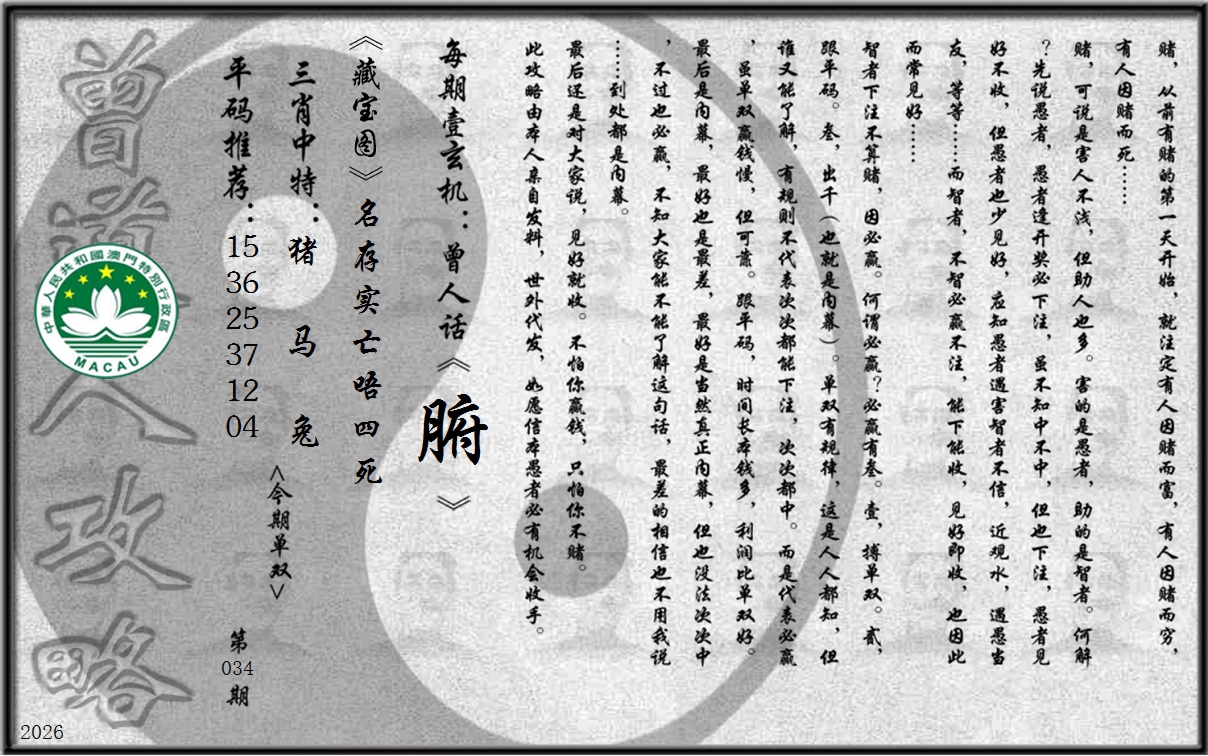 赌，从前有赌的第一天开始，就注定有人因赌而富，有人因赌而穷，
有人因赌而死……
赌，可说是害人不浅，但助人也多。害的是愚者，助的是智者。何解
？先说愚者，愚者逢开奖必下注，虽不知中不中，但也下注，愚者见
好不收，但愚者也少见好，应知愚者遇害智者不信，近观水，遇愚当
友，等等……而智者，不智必赢不注，能下能收，见好即收，也因此
而常见好……
智者下注不算赌，因必赢。何谓必赢？必赢有叁。壹，搏单双。贰，
跟平码。叁，出千（也就是内幕）。单双有规律，这是人人都知，但
谁又能了解，有规则不代表次次都能下注，次次都中。而是代表必赢
，虽单双赢钱慢，但可靠。跟平码，时间长本钱多，利润比单双好。
最后是内幕，最好也是最差，最好是当然真正内幕，但也没法次次中
，不过也必赢，不知大家能不能了解这句话，最差的相信也不用我说
……到处都是内幕。
最后还是对大家说，见好就收。不怕你赢钱，只怕你不赌。
此攻略由本人亲自发料，世外代发，如愿信本愚者必有机会收手。
每期壹玄机：曾人话《腑》
《藏宝图》名存实亡唔四死
三肖中特：猪 马 兔
<今期单双>
平码推荐：15 36 25 37 12 04
第034期
曾道人攻略
中華人民共和國澳門特別行政區
MACAU
2026